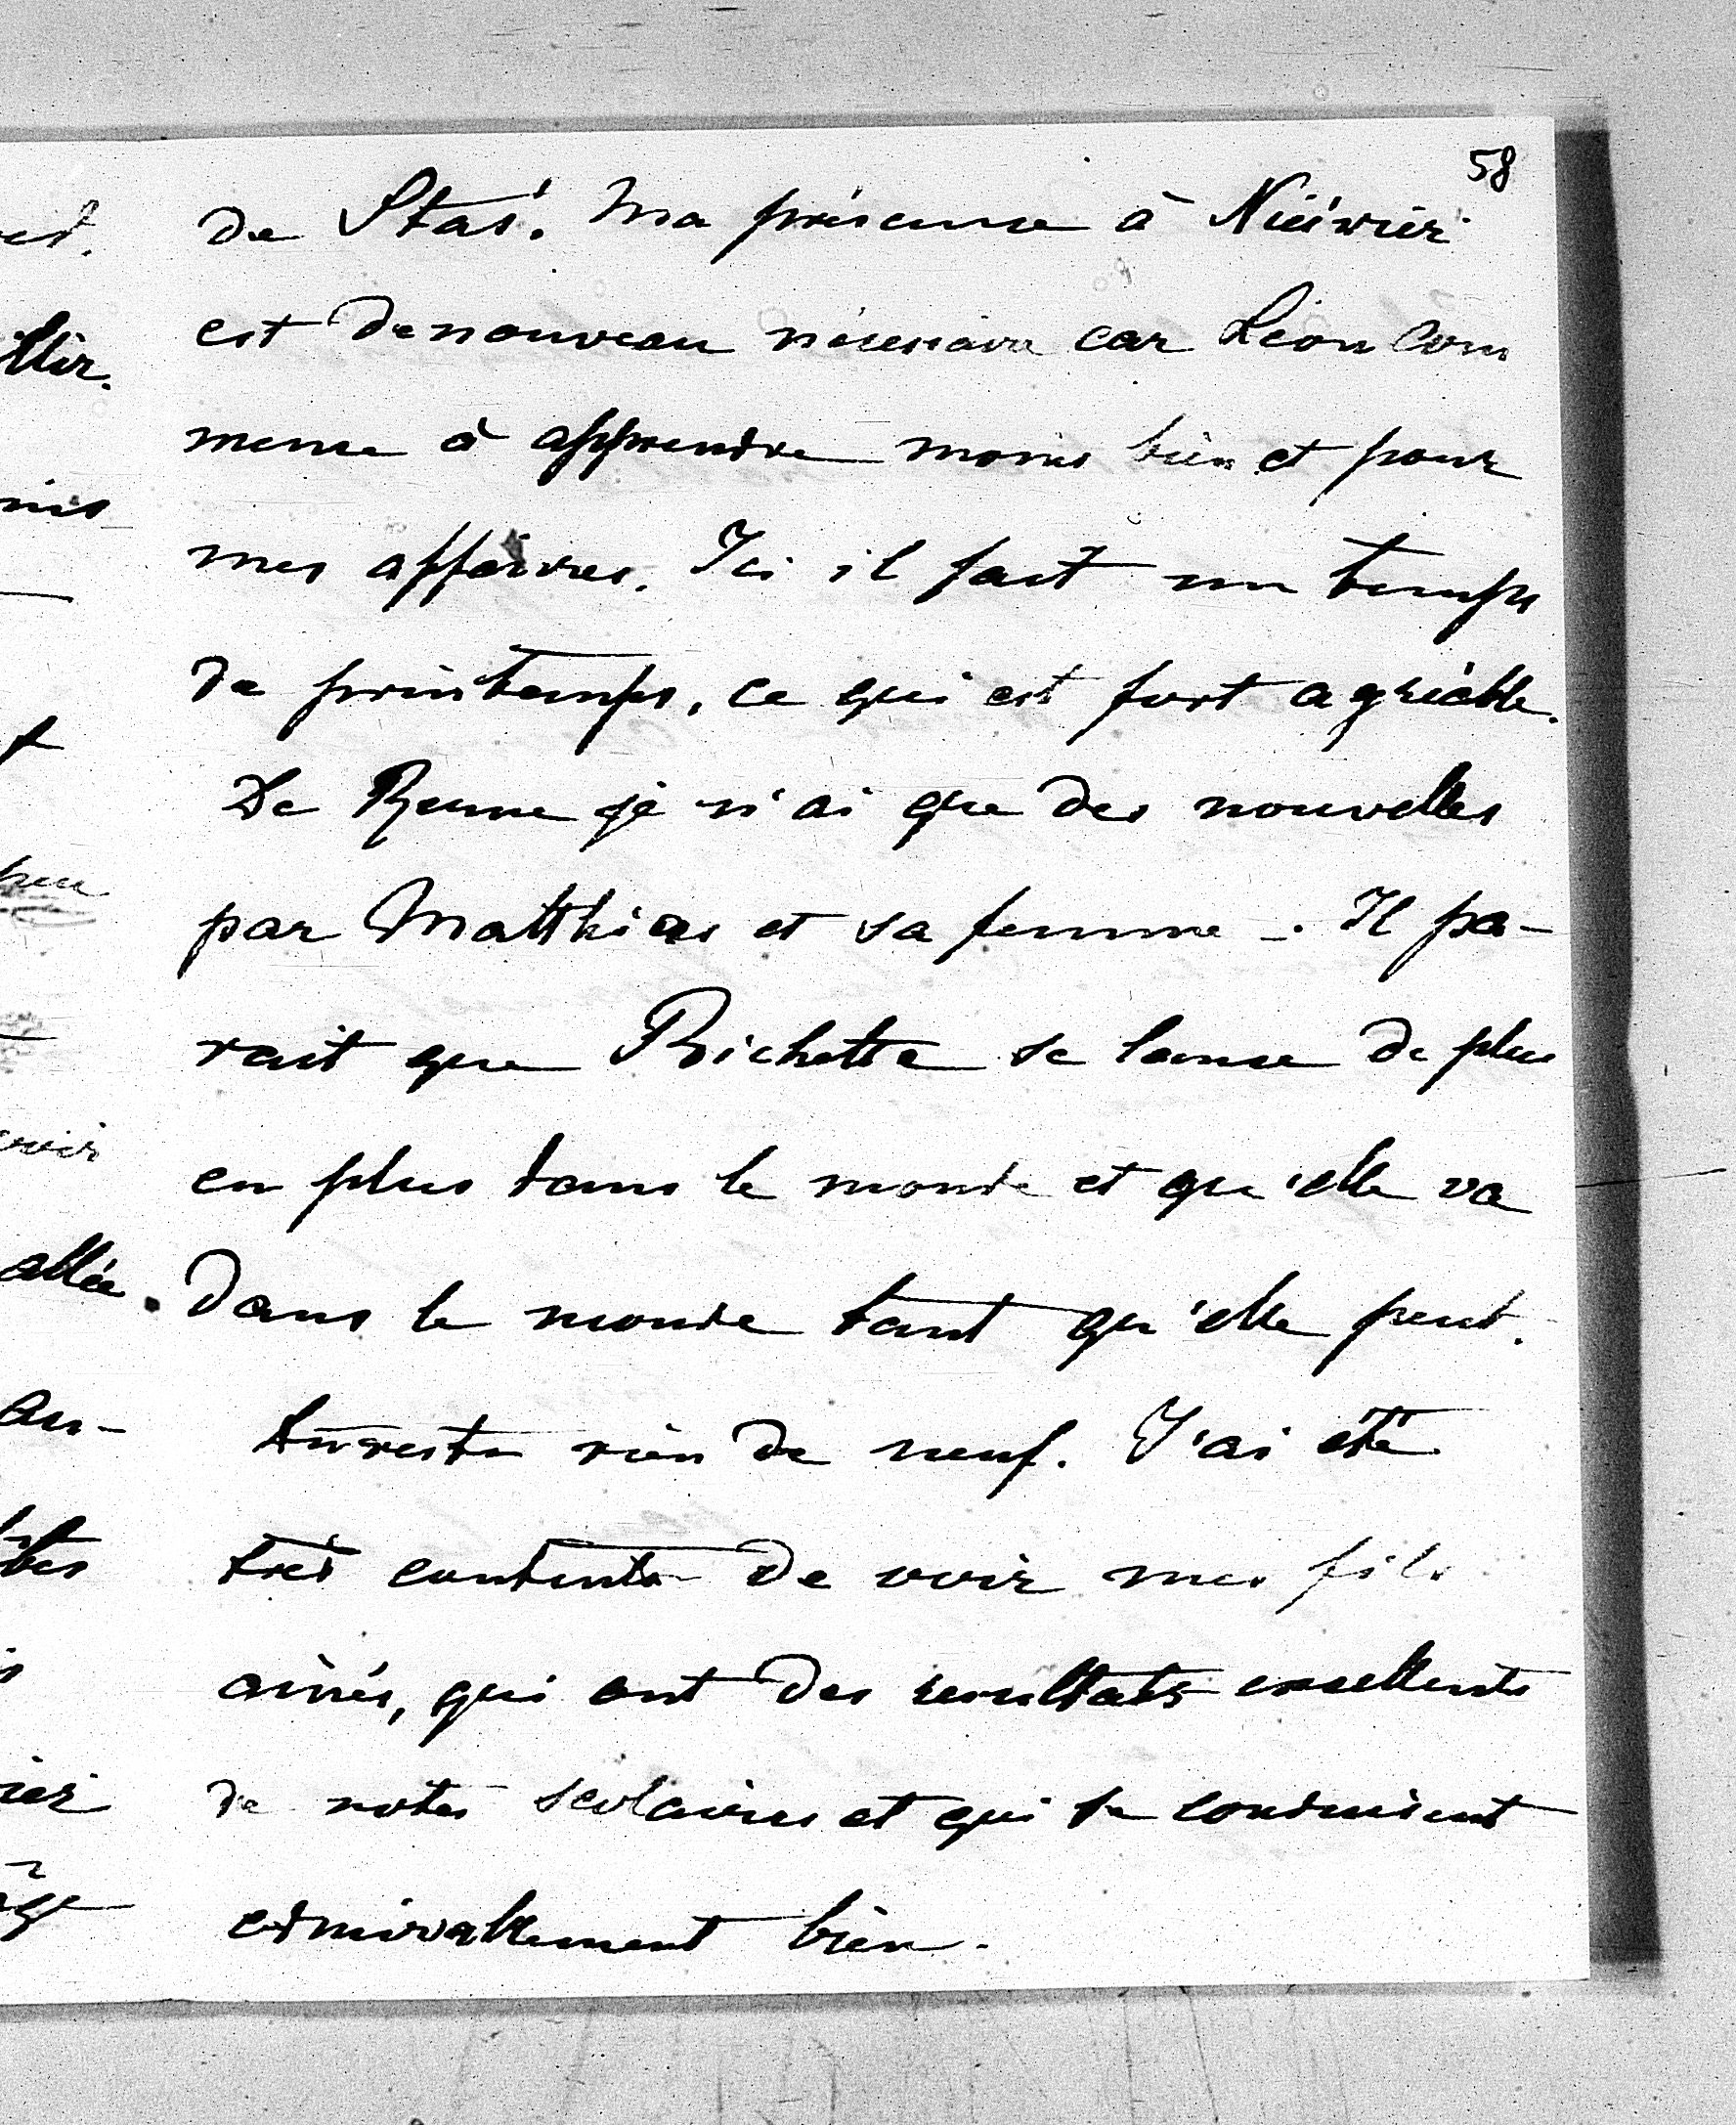 58
de Staś. Ma présence à Nieśwież
est denouveau nécessaire car Léon com
mence à apprendre moins bien et pour
mes affaires. Ici il fait un temps
de printemps, ce qui est fort agréable.
De Rome je n'ai que des nouvelles
par Matthias et sa femme -. Il pa-
rait que Bichette se lance de plus
en plus dans le monde et qu'elle va
dans le monde tant qu'elle peut.
Aureste rien de neuf. J'ai été
très contente de voir mes fils
ainés, qui ont des resultats excellents
de notes scolaires et qui se conduisent
admirablement bien.